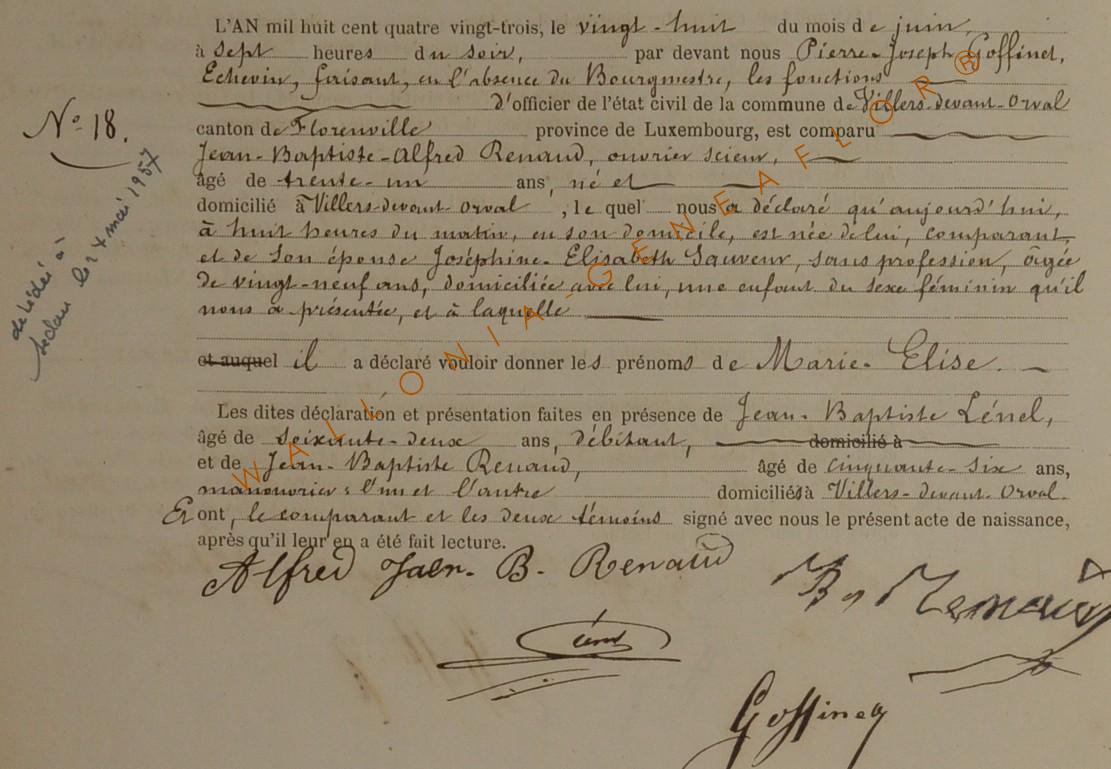 L'AN mil huit cent quatre vingt-trois, le vingt-huit du mois de juin,
à sept heures du soir, par devant nous Pierre-Joseph Goffinet,
Echevin, faisant, en l'absence du Bourgmestre, les fonctions
d'officier de l'état civil de la commune de Villers-devant-Orval
N° 18.
canton de Florenville province de Luxembourg, est comparu
Jean-Baptiste-Alfred Renaud, ouvrier scieur,
âgé de trente-un ans, né et
domicilié à Villers-devant-Orval, lequel nous a déclaré qu'aujourd'hui,
à huit heures du matin, en son domicile, est née de lui, comparant,
et de son épouse Joséphine-Elisabeth Sauveur, sans profession, âgée
de vingt-neuf ans, domiciliée avec lui, une enfant du sexe féminin qu'il
nous a présentée, et à laquelle
et auquel il a déclaré vouloir donner les prénoms de Marie-Elise.
Les dites déclaration et présentation faites en présence de Jean-Baptiste Lénel,
âgé de soixante-deux ans, débitant, domicilié à
et de Jean-Baptiste Renaud, âgé de cinquante-six ans,
manouvrier; l'un et l'autre domiciliés à Villers-devant-Orval.
Et ont, le comparant et les deux témoins signé avec nous le présent acte de naissance,
après qu'il leur en a été fait lecture.
décédée à
le 24 mai 1957
Alfred Jaen-B. Renaud
Renaud
Lénel
Goffinet
WALLONIA-GENEAFLOR®